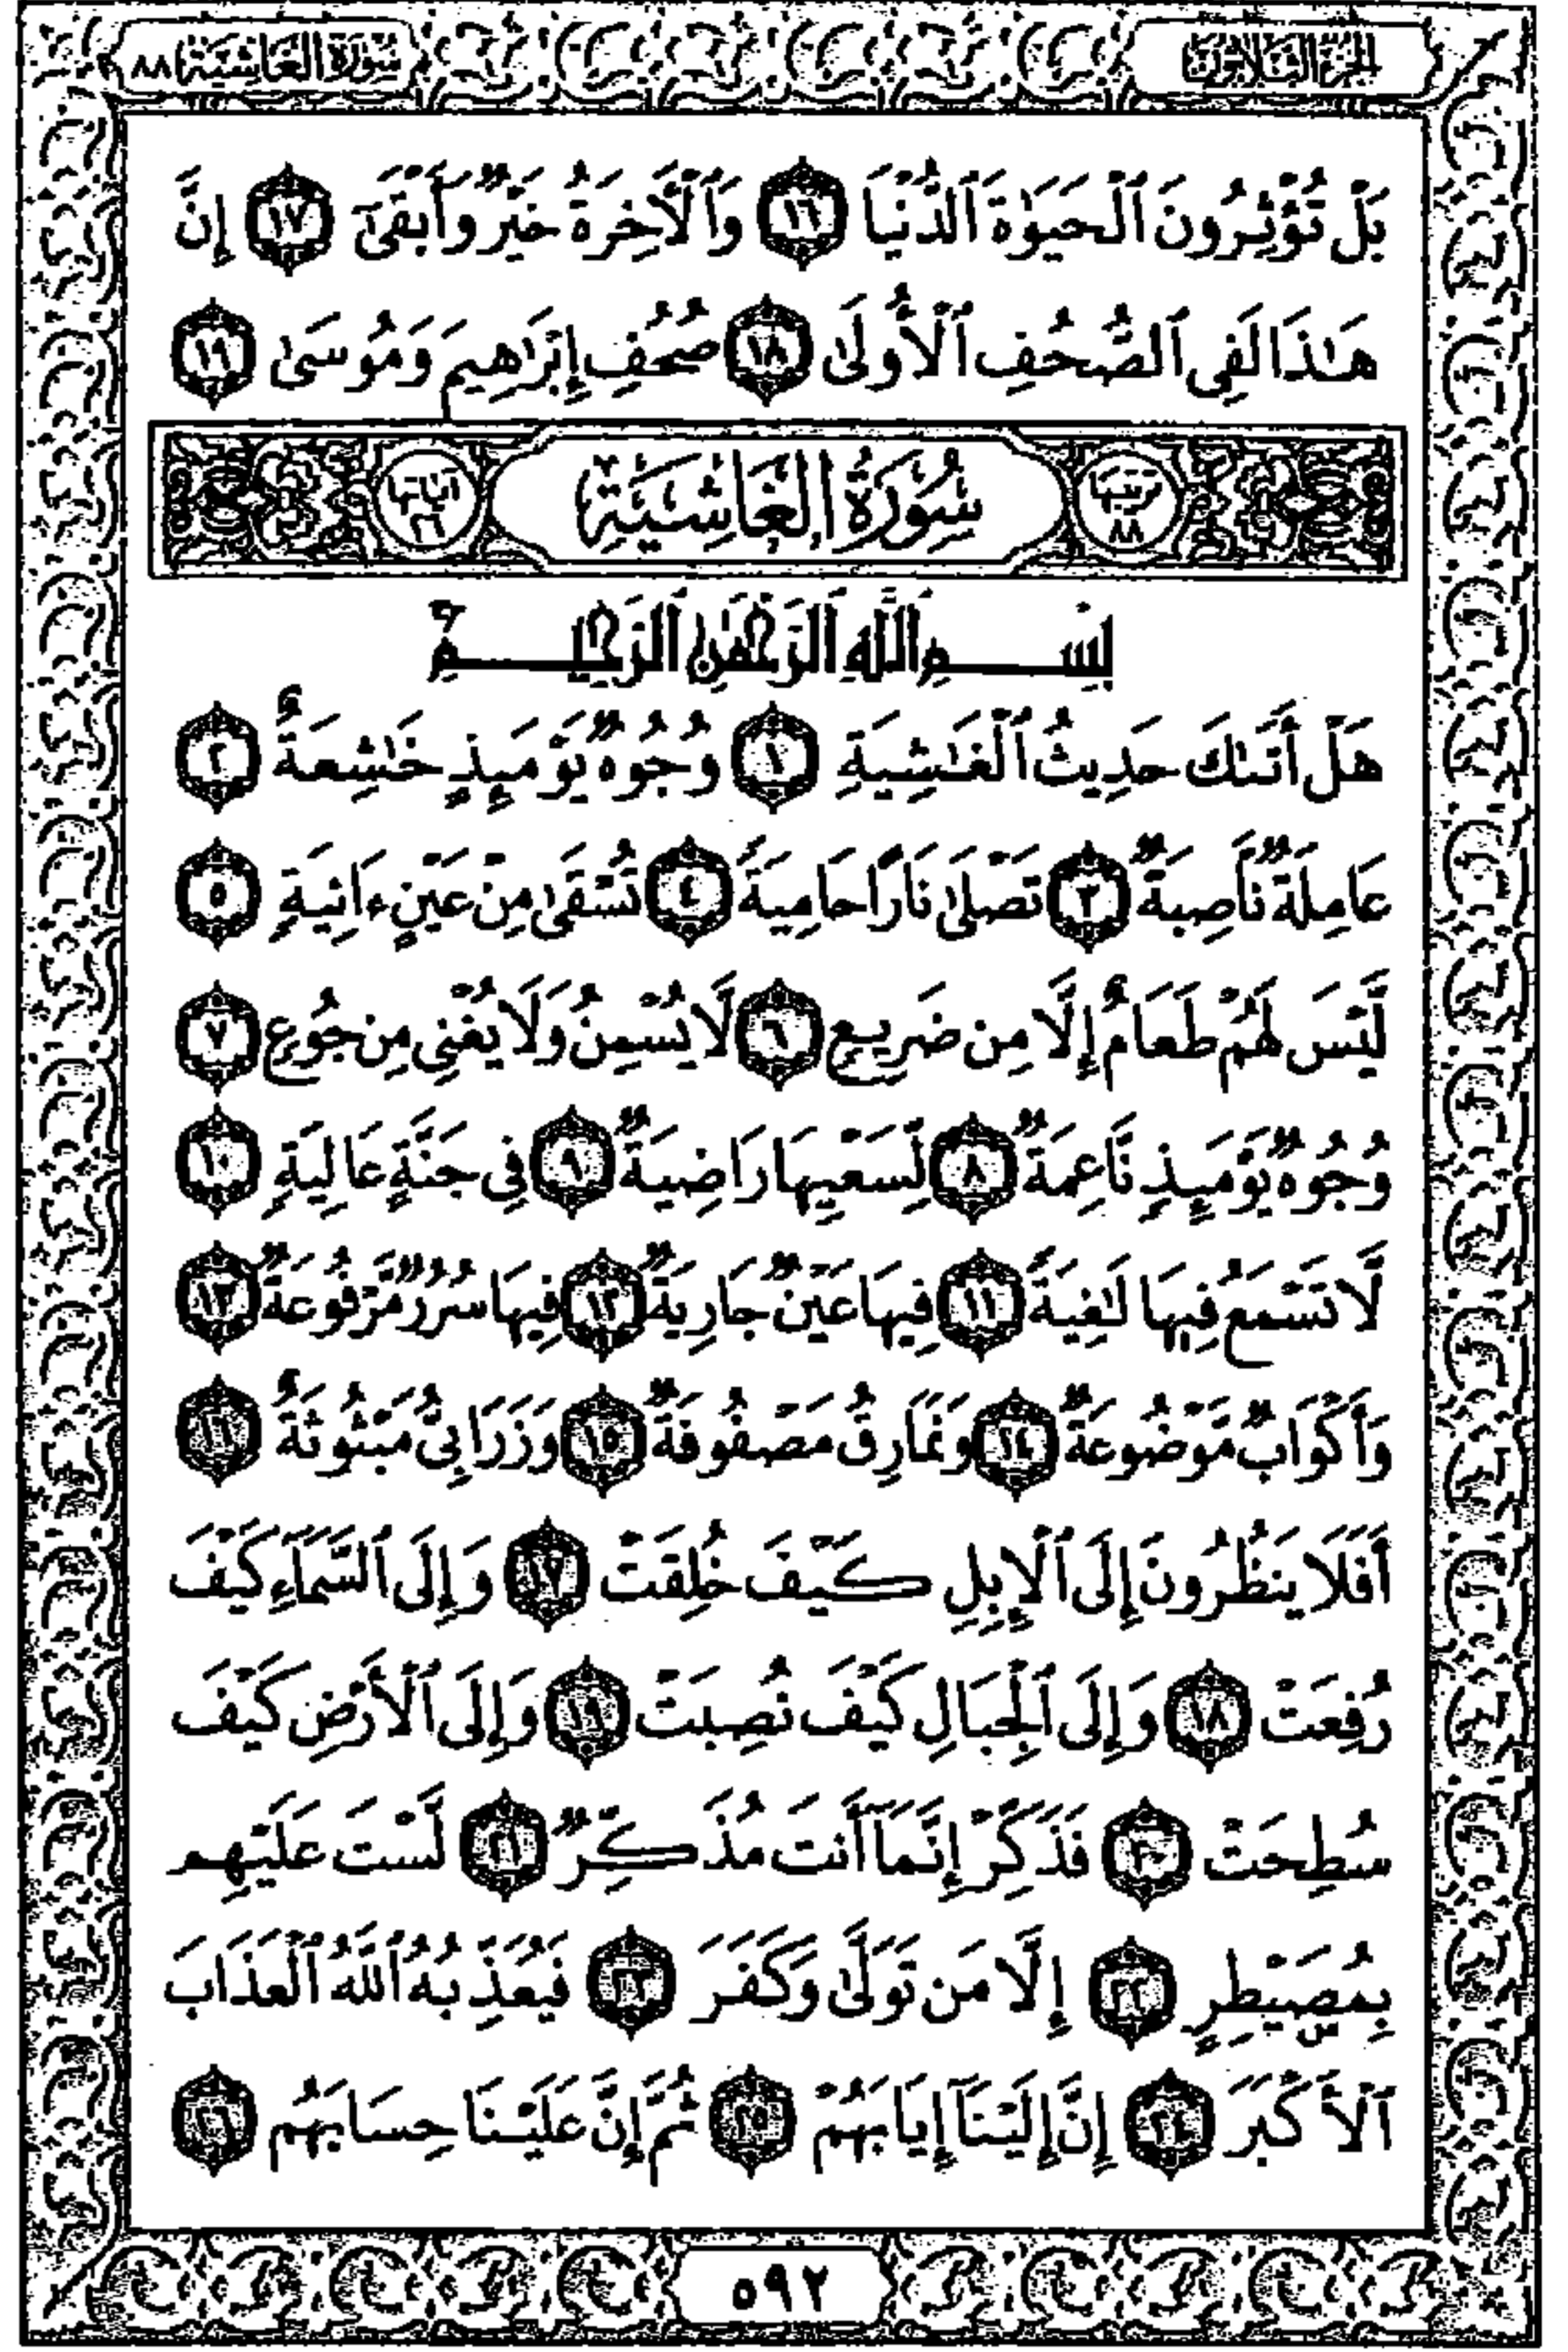 الجزء الثلاثون
سورة الغاشية ٨٨
بَلْ تُؤْثِرُونَ ٱلْحَيَوٰةَ ٱلدُّنْيَا ١٦ وَٱلْأَخِرَةُ خَيْرٌ وَأَبْقَىٰٓ ١٧ إِنَّ
هَٰذَا لَفِى ٱلصُّحُفِ ٱلْأُولَىٰ ١٨ صُحُفِ إِبْرَٰهِيمَ وَمُوسَىٰ ١٩
ترتيبها ٨٨ سُورَةُ الْغَاشِيَةِ آياتها ٢٦
بِسْمِ ٱللَّهِ ٱلرَّحْمَٰنِ ٱلرَّحِيمِ
هَلْ أَتَىٰكَ حَدِيثُ ٱلْغَٰشِيَةِ ١ وُجُوهٌ يَوْمَئِذٍ خَٰشِعَةٌ ٢
عَامِلَةٌ نَّاصِبَةٌ ٣ تَصْلَىٰ نَارًا حَامِيَةً ٤ تُسْقَىٰ مِنْ عَيْنٍ ءَانِيَةٍ ٥
لَّيْسَ لَهُمْ طَعَامٌ إِلَّا مِن ضَرِيعٍ ٦ لَّا يُسْمِنُ وَلَا يُغْنِى مِن جُوعٍ ٧
وُجُوهٌ يَوْمَئِذٍ نَّاعِمَةٌ ٨ لِّسَعْيِهَا رَاضِيَةٌ ٩ فِى جَنَّةٍ عَالِيَةٍ ١٠
لَّا تَسْمَعُ فِيهَا لَٰغِيَةً ١١ فِيهَا عَيْنٌ جَارِيَةٌ ١٢ فِيهَا سُرُرٌ مَّرْفُوعَةٌ ١٣
وَأَكْوَابٌ مَّوْضُوعَةٌ ١٤ وَنَمَارِقُ مَصْفُوفَةٌ ١٥ وَزَرَابِىُّ مَبْثُوثَةٌ ١٦
أَفَلَا يَنظُرُونَ إِلَى ٱلْإِبِلِ كَيْفَ خُلِقَتْ ١٧ وَإِلَى ٱلسَّمَآءِ كَيْفَ
رُفِعَتْ ١٨ وَإِلَى ٱلْجِبَالِ كَيْفَ نُصِبَتْ ١٩ وَإِلَى ٱلْأَرْضِ كَيْفَ
سُطِحَتْ ٢٠ فَذَكِّرْ إِنَّمَآ أَنتَ مُذَكِّرٌ ٢١ لَّسْتَ عَلَيْهِم
بِمُصَيْطِرٍ ٢٢ إِلَّا مَن تَوَلَّىٰ وَكَفَرَ ٢٣ فَيُعَذِّبُهُ ٱللَّهُ ٱلْعَذَابَ
ٱلْأَكْبَرَ ٢٤ إِنَّ إِلَيْنَآ إِيَابَهُمْ ٢٥ ثُمَّ إِنَّ عَلَيْنَا حِسَابَهُم ٢٦
٥٩٢